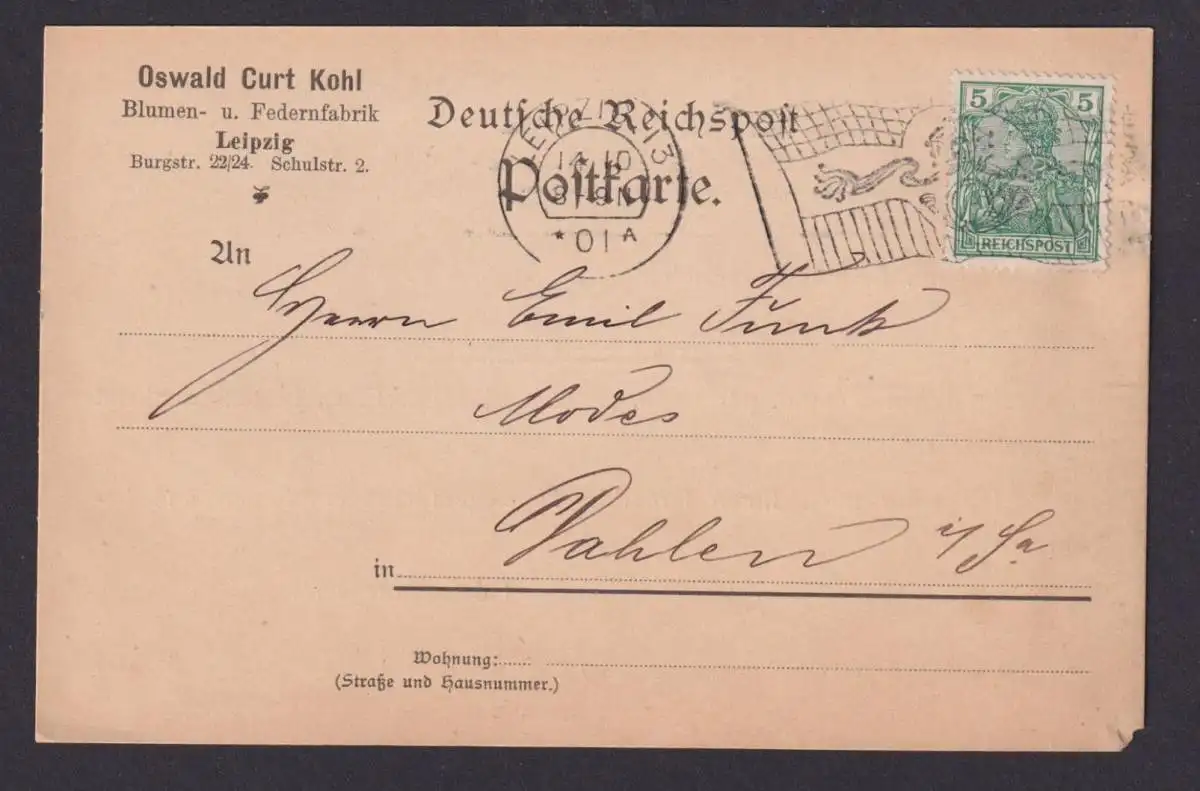 Oswald Curt Kohl
Blumen- u. Federnfabrik
Leipzig
Burgstr. 22/24. Schulstr. 2.
Deutsche Reichspost
Postkarte.
LEIPZIG 13
14.10
8-9N
*01A
5 5
REICHSPOST
An
Herrn Emil Funk
Modes
in Dahlen i/Sa
Wohnung:
(Straße und Hausnummer.)